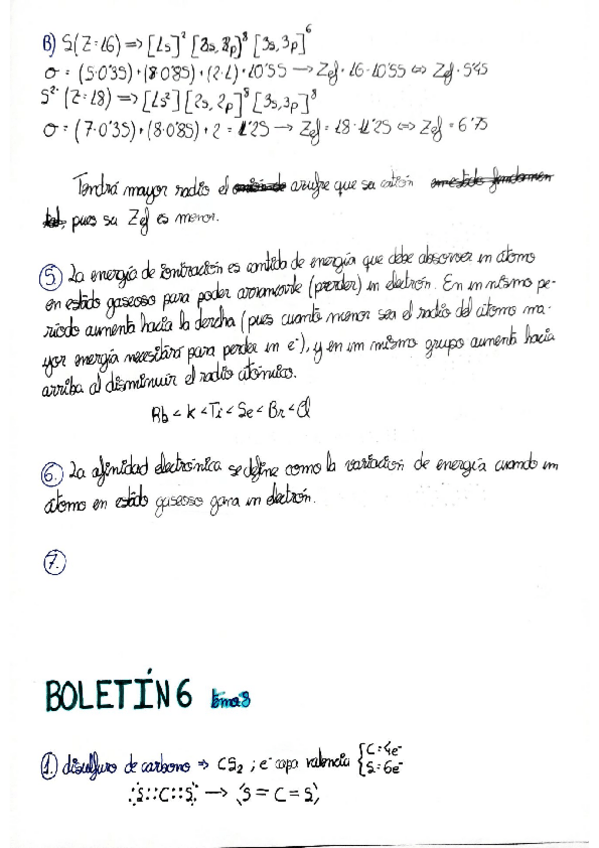 B) S(Z=16) => [1s]² [2s, 2p]⁸ [3s, 3p]⁶
σ = (5·0'35)+(8·0'85)+(2·1)=10'55 → Zef = 16-10'55 ⇔ Zef = 5'45
S²⁻ (Z=18) => [1s²] [2s, 2p]⁸ [3s, 3p]⁸
σ = (7·0'35)+(8·0'85)+2 = 11'25 → Zef = 18-11'25 ⇔ Zef = 6'75
Tendrá mayor radio el azufre que su catión
pues su Zef es menor.
5. La energía de ionización es cantida de energía que debe absorver un átomo
en estado gaseoso para poder arrancarle (perder) un electrón. En un mismo pe-
riodo aumenta hacia la dercha (pues cuanto menor sea el radio del átomo ma-
yor energía necesitará para perder un e⁻), y en un mismo grupo aumenta hacia
arriba al disminuir el radio atómico.
Rb < K < Ti < Se < Br < Cl
6. La afinidad electrónica se define como la variación de energía cuando un
átomo en estado gaseoso gana un electrón.
7.
BOLETÍN 6 tema 3
1. disulfuro de carbono → CS₂ ; e⁻ capa valencia { C: 4e⁻
S: 6e⁻
:S::C::S: → S = C = S